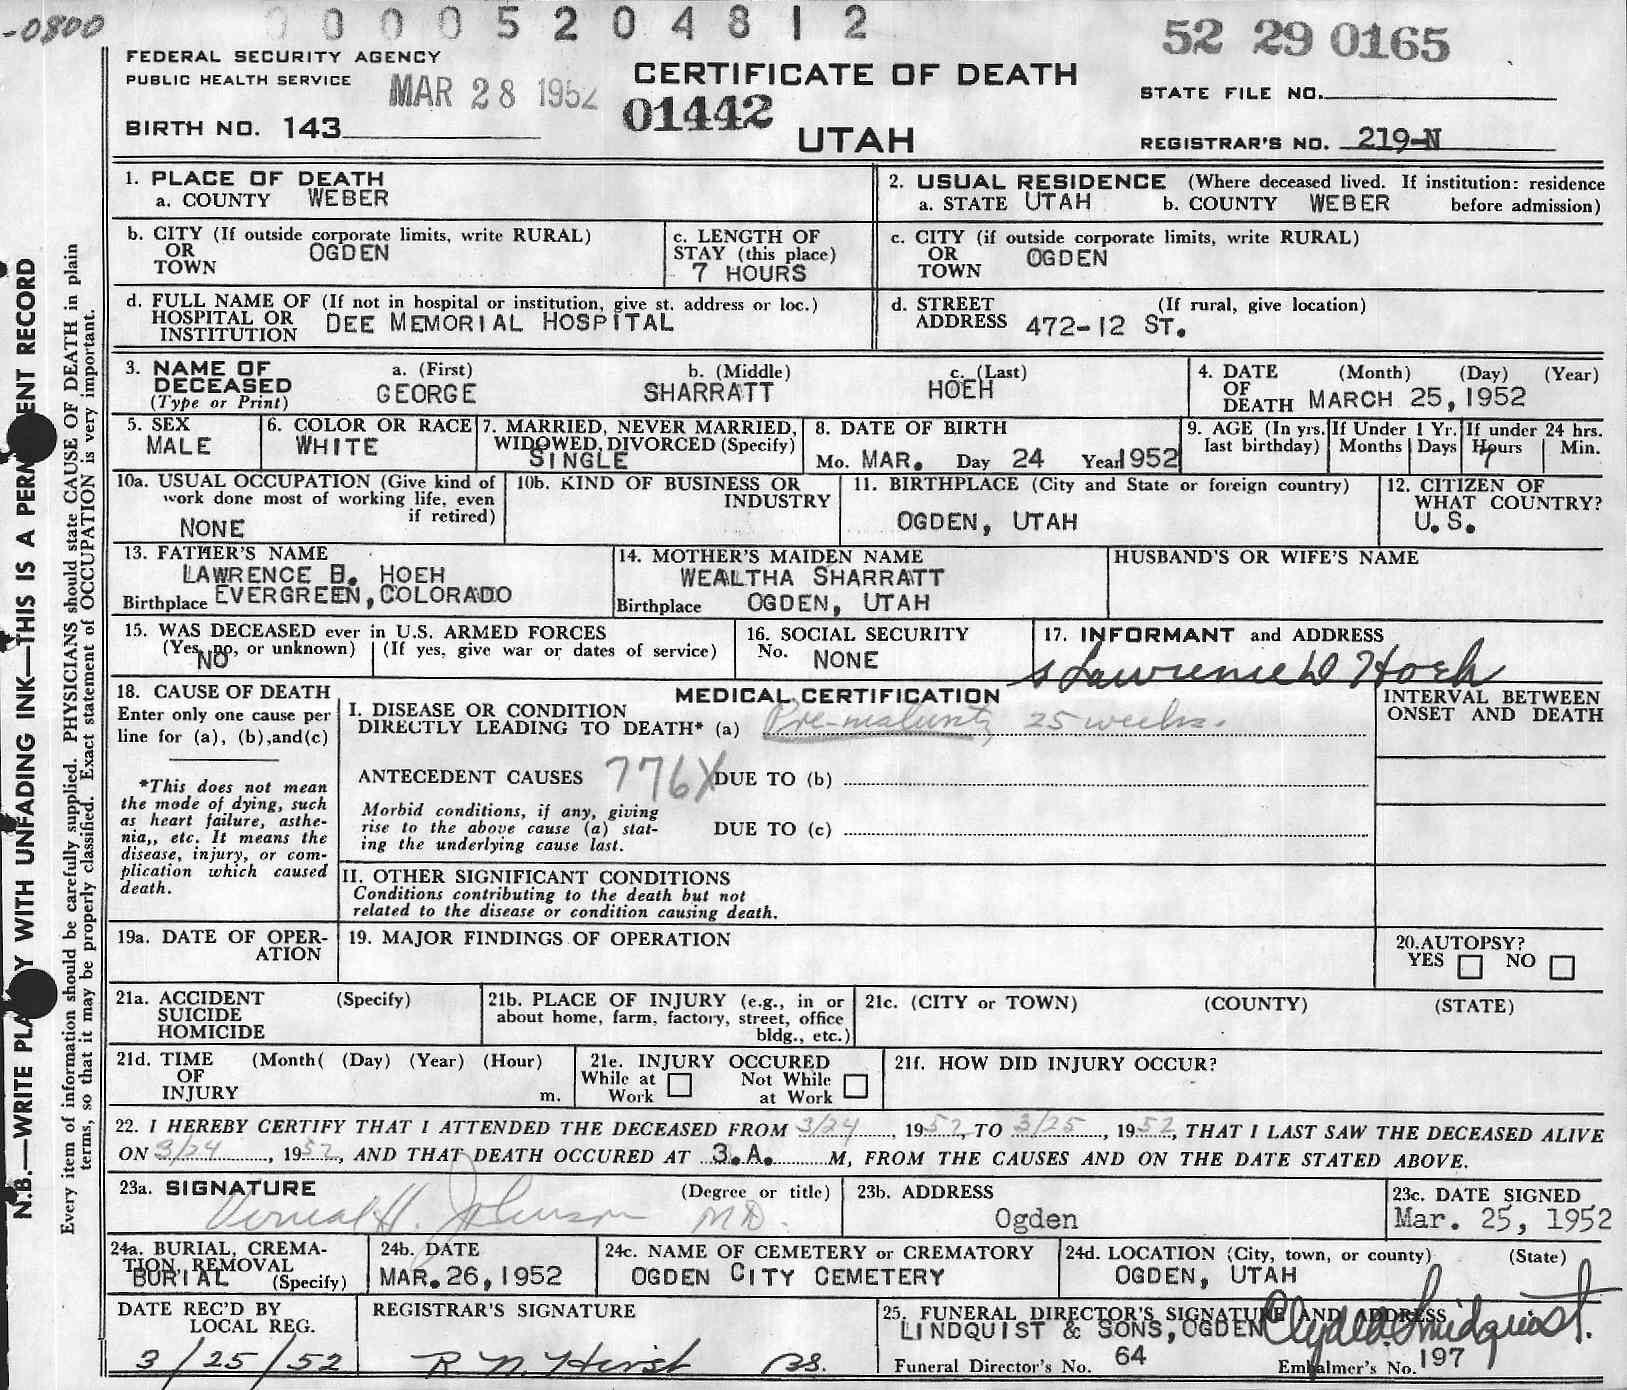 -0800
0 0 0 0 5 2 0 4 8 1 2
52 29 0165
FEDERAL SECURITY AGENCY
PUBLIC HEALTH SERVICE
MAR 28 1952
CERTIFICATE OF DEATH
01442
UTAH
STATE FILE NO.
BIRTH NO. 143
REGISTRAR'S NO. 219-N
N.B.—WRITE PLA Y WITH UNFADING INK—THIS IS A PERM ENT RECORD
Every item of information should be carefully supplied. PHYSICIANS should state CAUSE OF DEATH in plain
terms, so that it may be properly classified. Exact statement of OCCUPATION is very important.
1. PLACE OF DEATH
a. COUNTY WEBER
2. USUAL RESIDENCE (Where deceased lived. If institution: residence
a. STATE UTAH b. COUNTY WEBER before admission)
b. CITY (If outside corporate limits, write RURAL)
OR
TOWN OGDEN
c. LENGTH OF
STAY (this place)
7 HOURS
c. CITY (if outside corporate limits, write RURAL)
OR
TOWN OGDEN
d. FULL NAME OF (If not in hospital or institution, give st. address or loc.)
HOSPITAL OR
INSTITUTION DEE MEMORIAL HOSPITAL
d. STREET (If rural, give location)
ADDRESS 472-12 ST.
3. NAME OF
DECEASED
(Type or Print)
a. (First)
GEORGE
b. (Middle)
SHARRATT
c. (Last)
HOEH
4. DATE (Month) (Day) (Year)
OF
DEATH MARCH 25, 1952
5. SEX
MALE
6. COLOR OR RACE
WHITE
7. MARRIED, NEVER MARRIED,
WIDOWED, DIVORCED (Specify)
SINGLE
8. DATE OF BIRTH
Mo. MAR. Day 24 Year 1952
9. AGE (In yrs.
last birthday)
If Under 1 Yr.
Months Days
If under 24 hrs.
Hours Min.
7
10a. USUAL OCCUPATION (Give kind of
work done most of working life, even
if retired)
NONE
10b. KIND OF BUSINESS OR
INDUSTRY
11. BIRTHPLACE (City and State or foreign country)
OGDEN, UTAH
12. CITIZEN OF
WHAT COUNTRY?
U.S.
13. FATHER'S NAME
LAWRENCE B. HOEH
Birthplace EVERGREEN, COLORADO
14. MOTHER'S MAIDEN NAME
WEALTHA SHARRATT
Birthplace OGDEN, UTAH
HUSBAND'S OR WIFE'S NAME
15. WAS DECEASED ever in U.S. ARMED FORCES
(Yes, no, or unknown) (If yes, give war or dates of service)
NO
16. SOCIAL SECURITY
No. NONE
17. INFORMANT and ADDRESS
s Lawrence D Hoeh
18. CAUSE OF DEATH
Enter only one cause per
line for (a), (b),and(c)
*This does not mean
the mode of dying, such
as heart failure, asthe-
nia,, etc. It means the
disease, injury, or com-
plication which caused
death.
MEDICAL CERTIFICATION
I. DISEASE OR CONDITION
DIRECTLY LEADING TO DEATH* (a) Pre-maturity 25 weeks.
ANTECEDENT CAUSES 776X DUE TO (b)
Morbid conditions, if any, giving
rise to the above cause (a) stat-
ing the underlying cause last.
DUE TO (c)
II. OTHER SIGNIFICANT CONDITIONS
Conditions contributing to the death but not
related to the disease or condition causing death.
INTERVAL BETWEEN
ONSET AND DEATH
19a. DATE OF OPER-
ATION
19. MAJOR FINDINGS OF OPERATION
20. AUTOPSY?
YES NO
21a. ACCIDENT (Specify)
SUICIDE
HOMICIDE
21b. PLACE OF INJURY (e.g., in or
about home, farm, factory, street, office
bldg., etc.)
21c. (CITY or TOWN) (COUNTY) (STATE)
21d. TIME (Month( (Day) (Year) (Hour)
OF
INJURY m.
21e. INJURY OCCURED
While at Work Not While at Work
21f. HOW DID INJURY OCCUR?
22. I HEREBY CERTIFY THAT I ATTENDED THE DECEASED FROM 3/24, 1952, TO 3/25, 1952, THAT I LAST SAW THE DECEASED ALIVE
ON 3/24, 1952, AND THAT DEATH OCCURED AT 3.A. M, FROM THE CAUSES AND ON THE DATE STATED ABOVE.
23a. SIGNATURE (Degree or title)
Verneal H. Johnson MD.
23b. ADDRESS
Ogden
23c. DATE SIGNED
Mar. 25, 1952
24a. BURIAL, CREMA-
TION, REMOVAL
BURIAL (Specify)
24b. DATE
MAR. 26, 1952
24c. NAME OF CEMETERY OR CREMATORY
OGDEN CITY CEMETERY
24d. LOCATION (City, town, or county) (State)
OGDEN, UTAH
DATE REC'D BY
LOCAL REG.
3/25/52
REGISTRAR'S SIGNATURE
R N Hirst BS.
25. FUNERAL DIRECTOR'S SIGNATURE AND ADDRESS
LINDQUIST & SONS, OGDEN Clyde D. Lindquist.
Funeral Director's No. 64 Embalmer's No. 197